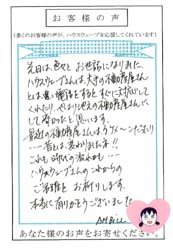 お客様の声
(多くのお客様の声が、ハウスウェーブを応援してくれています)
先日は色々とお世話になりました。
ハウスウェーブさんは、大手の不動産屋さん
とは違い電話をするとすぐに対応して
くれたり、やはり地元の不動産屋さんに
して良かったと思います。
最近の不動産屋さんは
昔とは変わりました!!
これも時代の流れかも…
ハウスウェーブさんのこれからの
ご活躍をお祈りします。
本当に有りがとうございました
あなた様のお声をお寄せください。